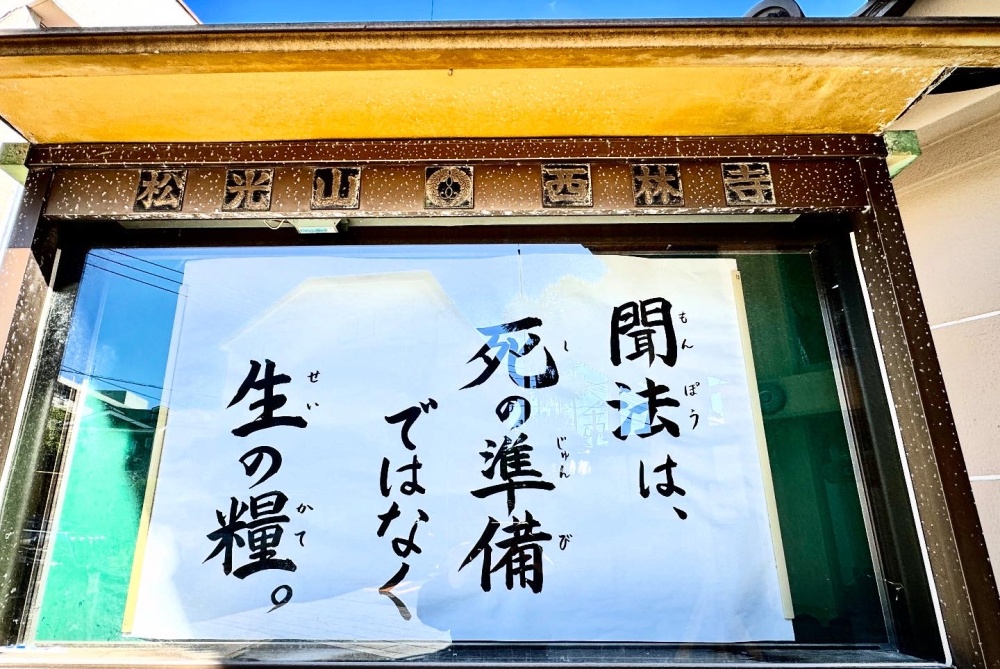 松光山 西林寺
聞法は、
もんぽう
死の準備
し じゅんび
ではなく
生の糧。
せい かて